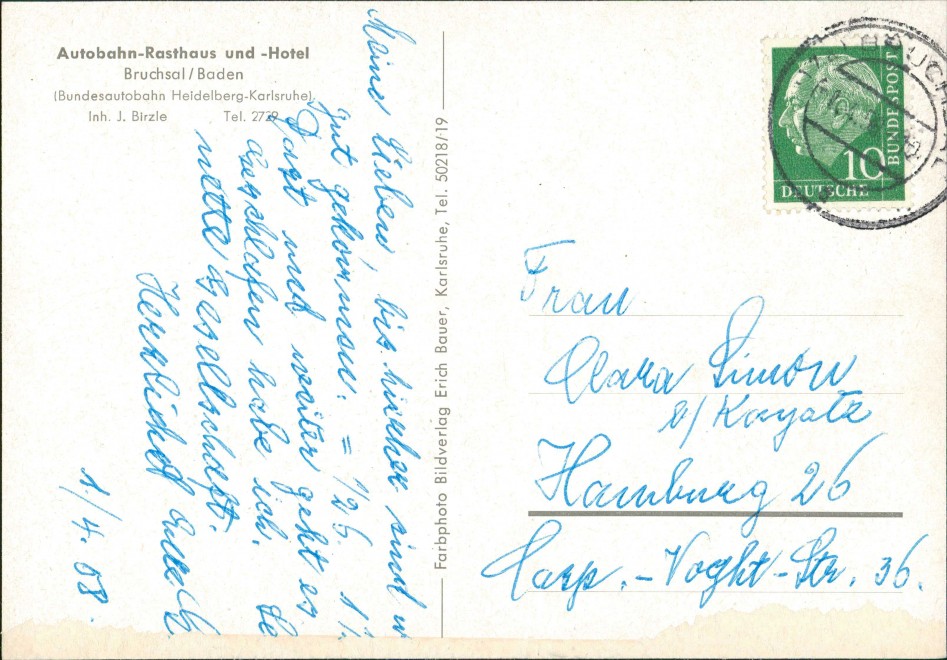 Autobahn-Rasthaus und -Hotel
Bruchsal/Baden
(Bundesautobahn Heidelberg-Karlsruhe)
Inh. J. Birzle Tel. 2729
Meine Lieben, bis hierher sind w
gut gekommen. =
Rast und weiter geht es.
Geschlafen habe ich.
nette Gesellschaft.
Herzlichst
1/4. 58
Farbphoto Bildverlag Erich Bauer, Karlsruhe, Tel. 50218/19
DEUTSCHE
BUNDESPOST
10
Frau
Clara Simon
b/ Kayatz
Hamburg 26
Carp.-Voght-Str. 36.